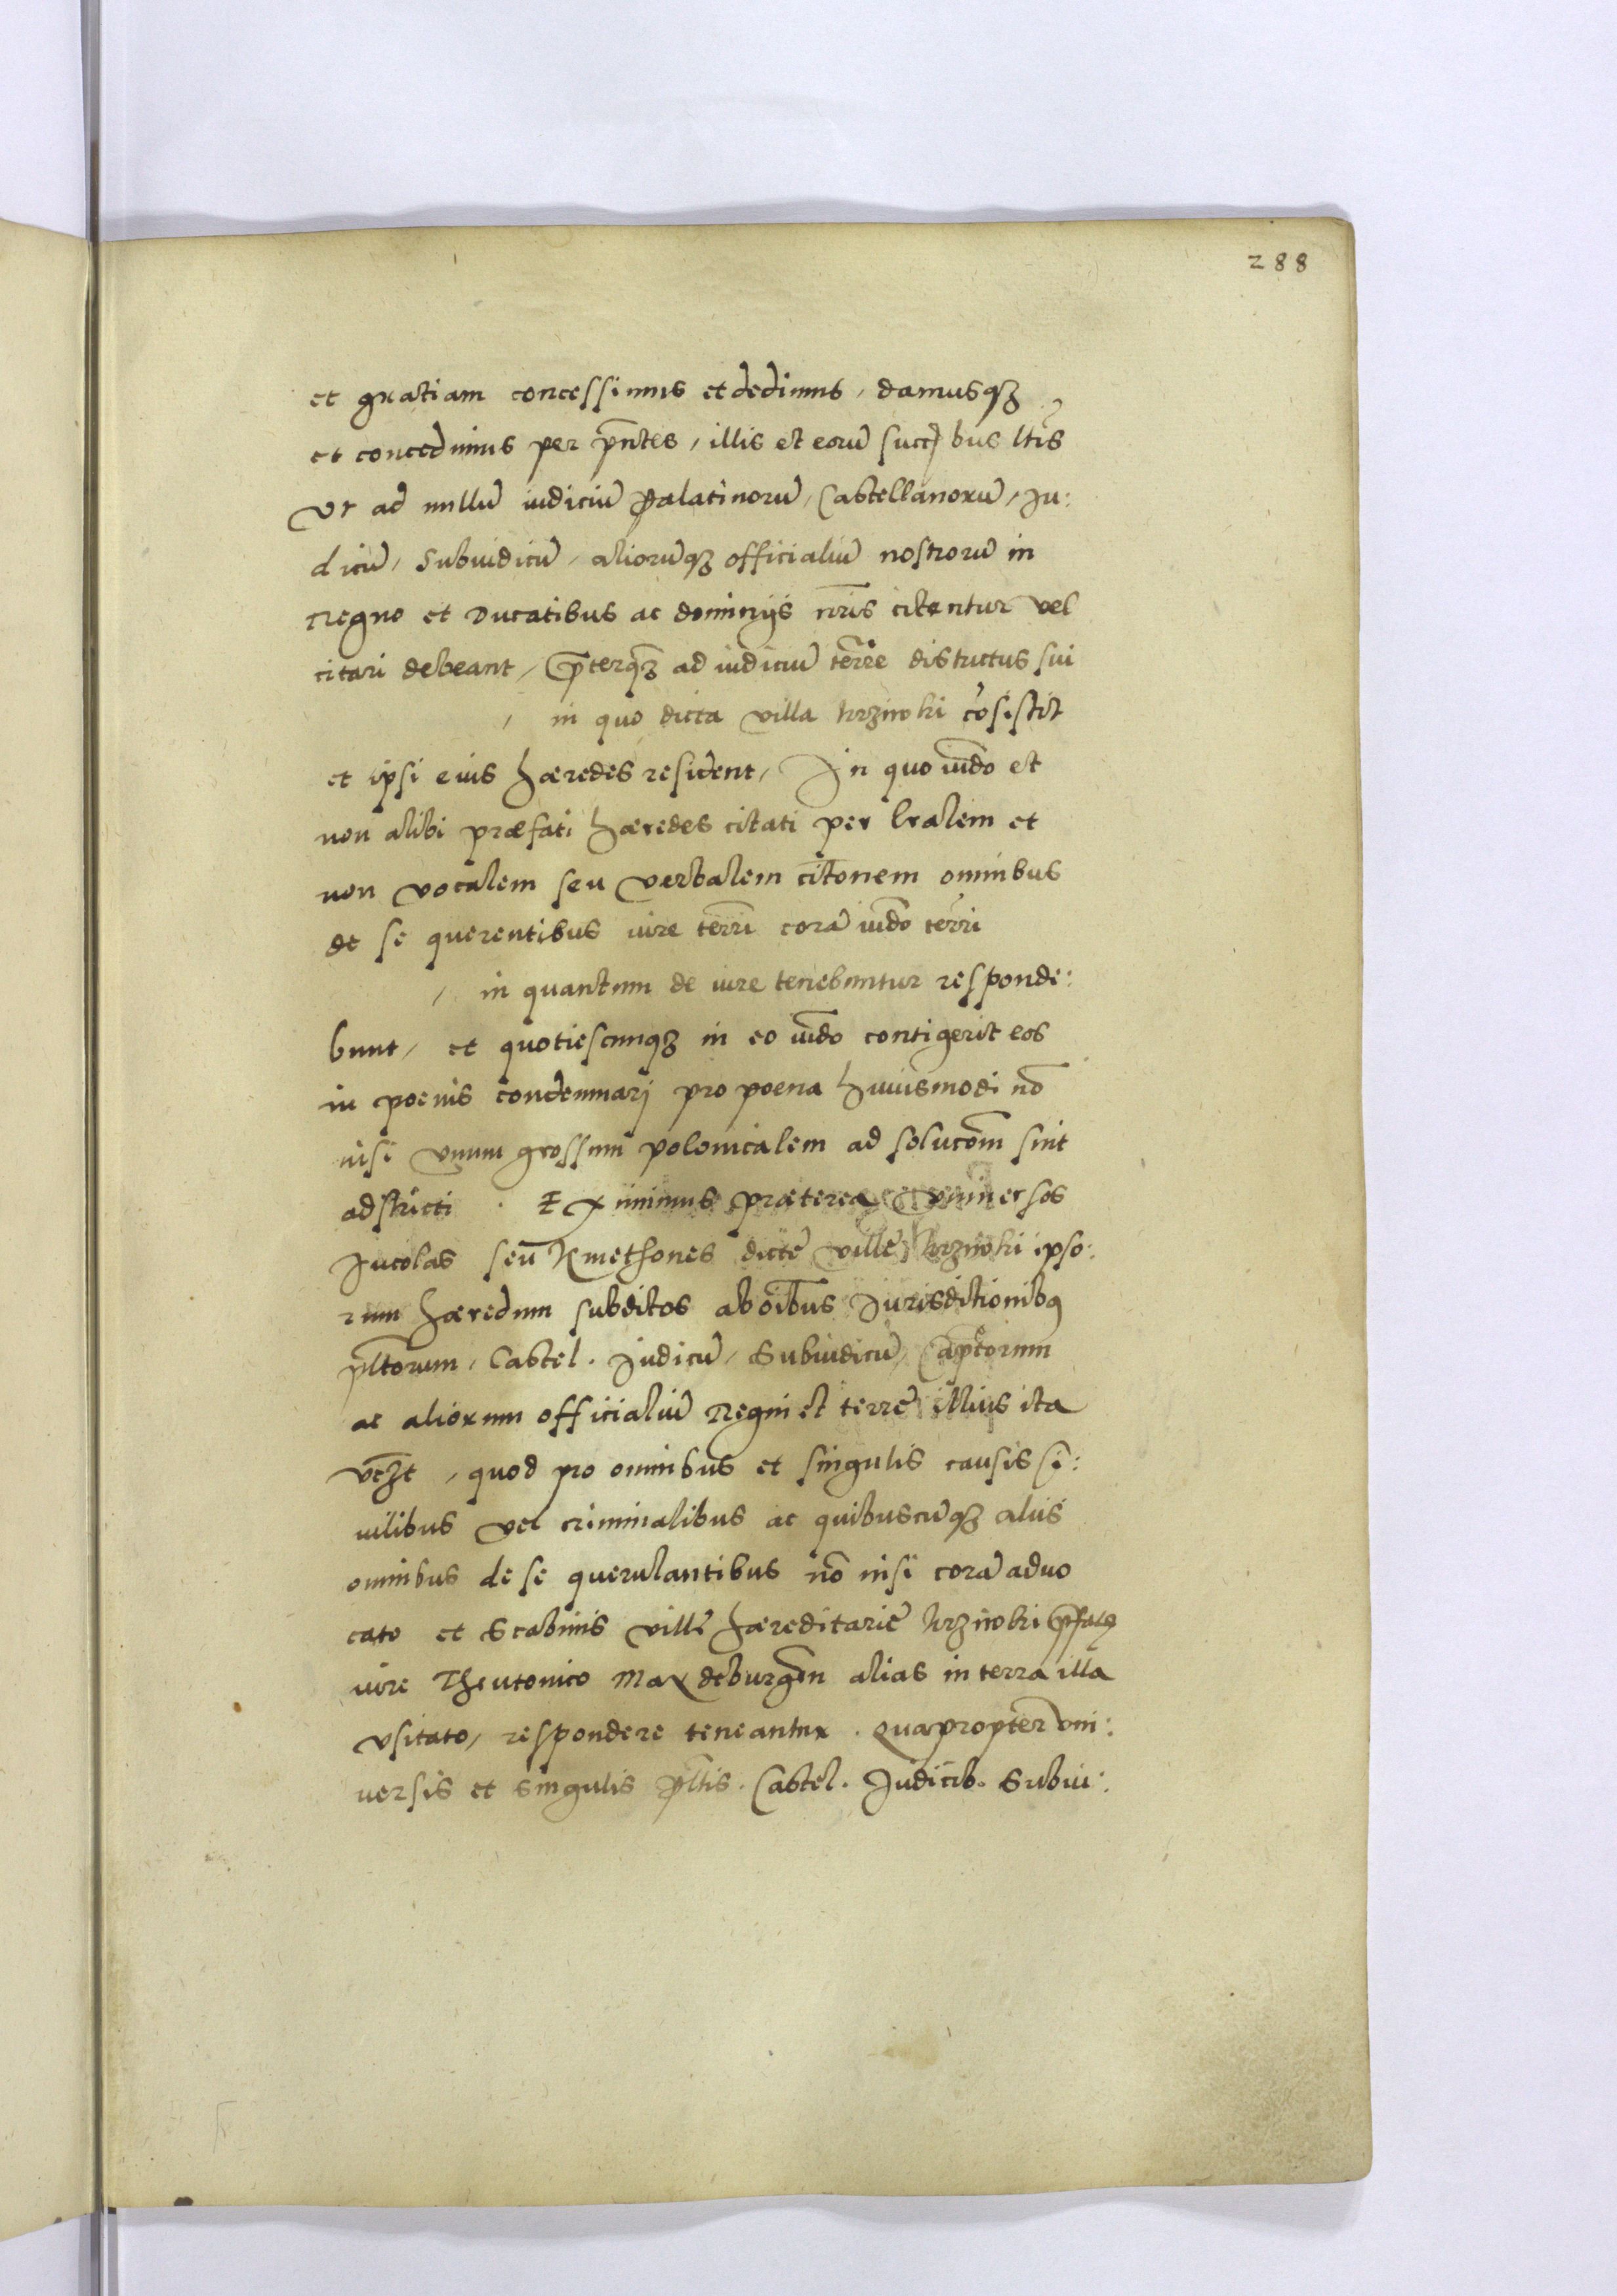 288
et gratiam concessimus et dedimus, damusqȝ
et concedimus per pn̄tes, illis et eorū succ̄bus ltīs
vt ad nullū iudiciū Palatinorū, Castellanorū, Ju:
dicū, Subiudicū, aliorūqȝ officialiū nostrorū in
Regno et Ducatibus ac dominijs nr̄is citentur vel
citari debeant, p̄terqȝ ad iudiciū terrę districtus sui
, in quo dicta villa krziwki cōsistit
et ipsi eius hæredes resident, In quo iud̄o et
non alibi præfati hæredes citati per lr̄alem et
non vocalem seu verbalem citōnem omnibus
de se querentibus iure terrī corā iud̄o terrī
, in quantum de iure tenebuntur responde:
bunt, et quotiescunqȝ in eo iud̄o contigerit eos
in poenis condemnarj pro poena huiusmodi nō
nisi vnum grossum polonicalem ad solucōm sint
adstricti . Eximimus præterea vniuersos
Incolas seu Kmethones dictę villę krziwki ipso:
rum hæredum subditos ab oībus Jurisditionibȩ
pltōrum, Castel. Judicū, Subiudicū, Cap̄torum
ac aliorum officialiū Regni et terrę illius ita
vcȝt, quod pro omnibus et singulis causis ci:
uilibus vel criminalibus ac quibuscūqȝ aliis
omnibus de se querulantibus nō nisi corā aduo
cato et Scabinis villę hæreditarię krziwki p̄fatę
iure Theutonico Maxdeburgēn alias in terra illa
vsitato, respondere teneantur. Quapropter vni:
uersis et singulis Pltīs. Castel. Judicib. Subiu: